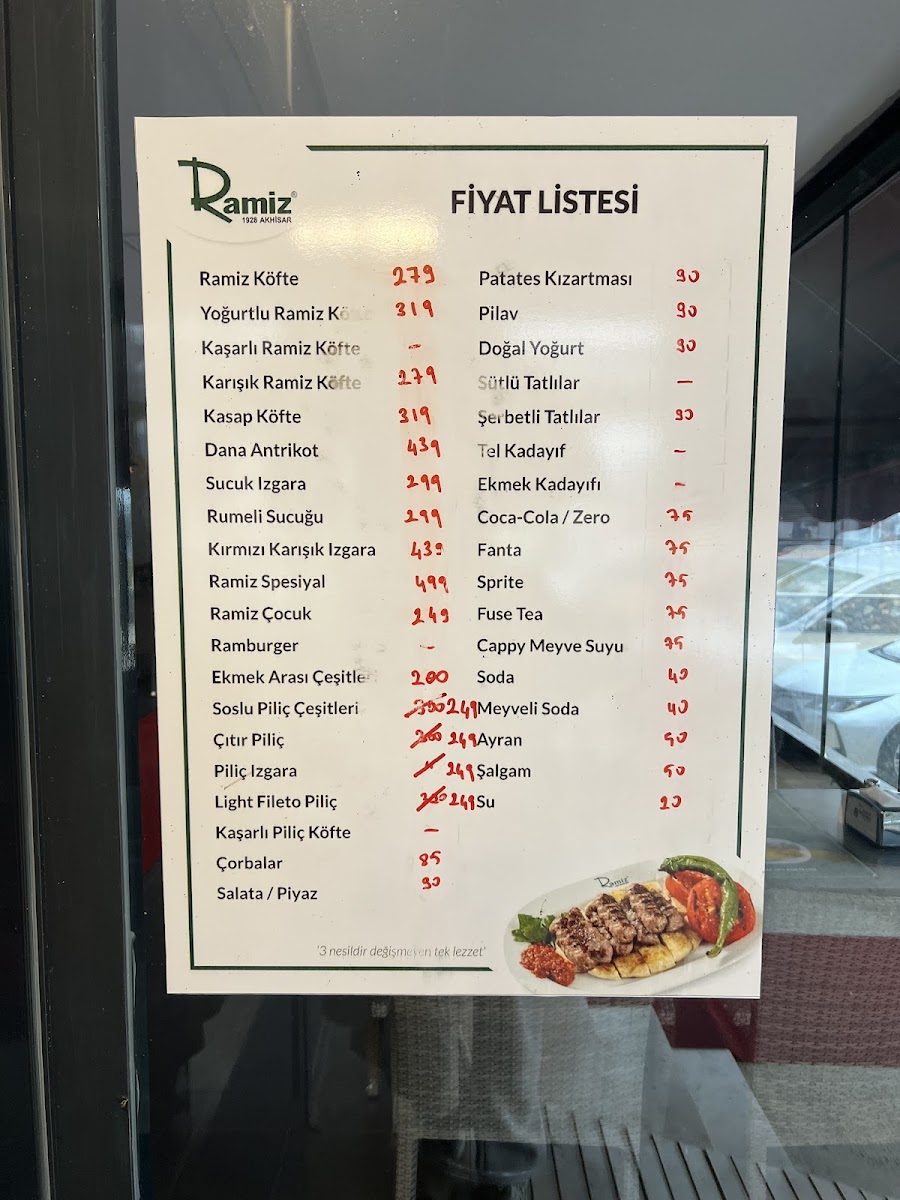 Ramiz®
1928 AKHİSAR
FİYAT LİSTESİ
Ramiz Köfte 279
Yoğurtlu Ramiz Kö 319
Kaşarlı Ramiz Köfte -
Karışık Ramiz Köfte 279
Kasap Köfte 319
Dana Antrikot 439
Sucuk Izgara 299
Rumeli Sucuğu 299
Kırmızı Karışık Izgara 439
Ramiz Spesiyal 499
Ramiz Çocuk 249
Ramburger -
Ekmek Arası Çeşitle 200
Soslu Piliç Çeşitleri 300 249
Çıtır Piliç 300 249
Piliç Izgara 249
Light Fileto Piliç 300 249
Kaşarlı Piliç Köfte -
Çorbalar 85
Salata / Piyaz 90
Patates Kızartması 90
Pilav 90
Doğal Yoğurt 90
Sütlü Tatlılar -
Şerbetli Tatlılar 90
Tel Kadayıf -
Ekmek Kadayıfı -
Coca-Cola / Zero 75
Fanta 75
Sprite 75
Fuse Tea 75
Cappy Meyve Suyu 75
Soda 40
Meyveli Soda 40
Ayran 50
Şalgam 50
Su 20
'3 nesildir değişmeyen tek lezzet'
Ramiz